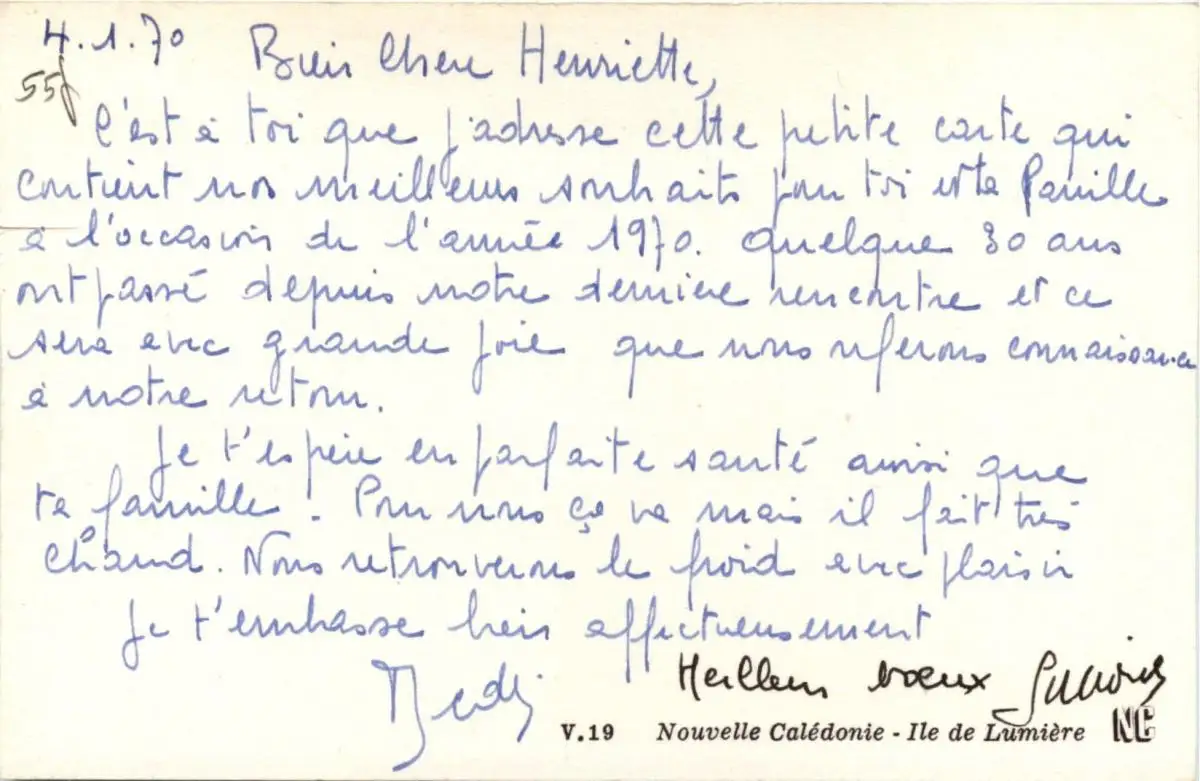 4.1.70 Bien Chere Henriette,
55f
C'est à toi que j'adresse cette petite carte qui
contient nos meilleurs souhaits pour toi et ta famille
à l'occasion de l'année 1970. Quelque 30 ans
ont passé depuis notre dernière rencontre et ce
sera avec grande joie que nous referons connaissance
à notre retour.
Je t'espère en parfaite santé ainsi que
ta famille. Pour nous ça va mais il fait très
chaud. Nous retrouverons le froid avec plaisir
Je t'embrasse bien affectueusement
Meilleurs vœux
V.19 Nouvelle Calédonie - Ile de Lumière NC